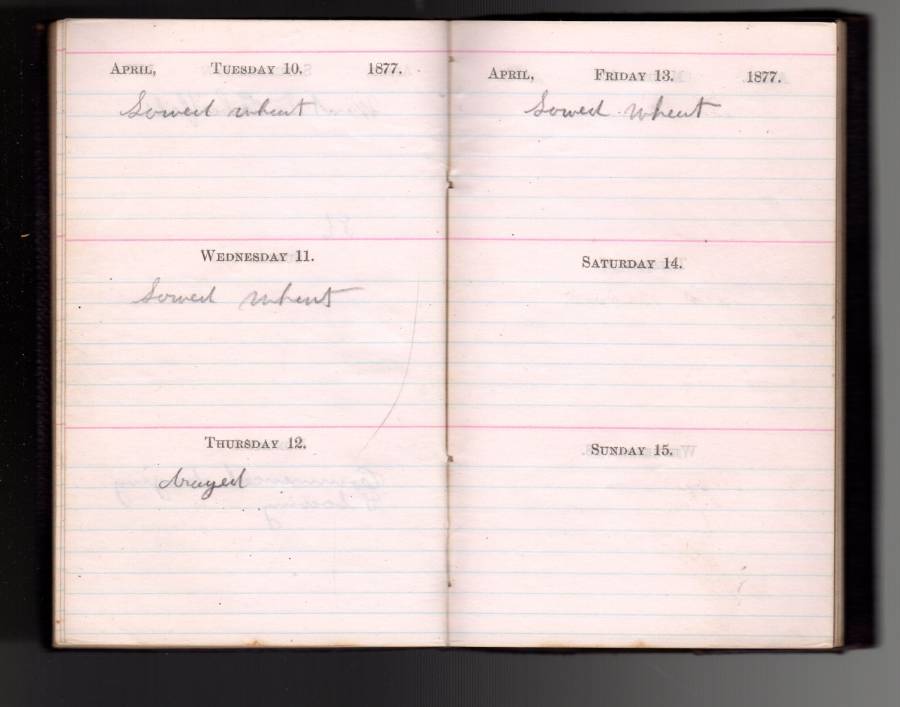 APRIL, TUESDAY 10. 1877.
Sowed wheat
WEDNESDAY 11.
Sowed wheat
THURSDAY 12.
draged
APRIL, FRIDAY 13. 1877.
Sowed wheat
SATURDAY 14.
SUNDAY 15.